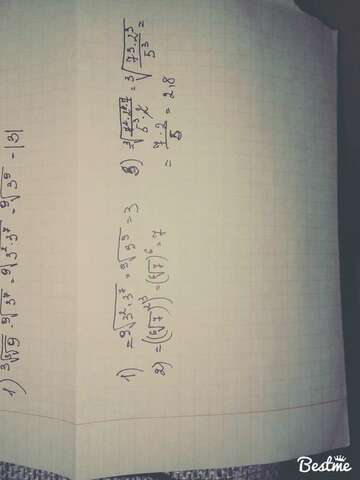 1) ∛(∛9) · ⁹√(3⁷) = ⁹√(3² · 3⁷) = ⁹√(3⁹) = |3|
1) = ⁹√(3² · 3⁷) = ⁹√(3⁹) = 3
2) = ((⁶√7)²)³ = (⁶√7)⁶ = 7
3) = ∛(7³ · 2³ / 5³) =
= 7 · 2 / 5 = 2,8
Bestme